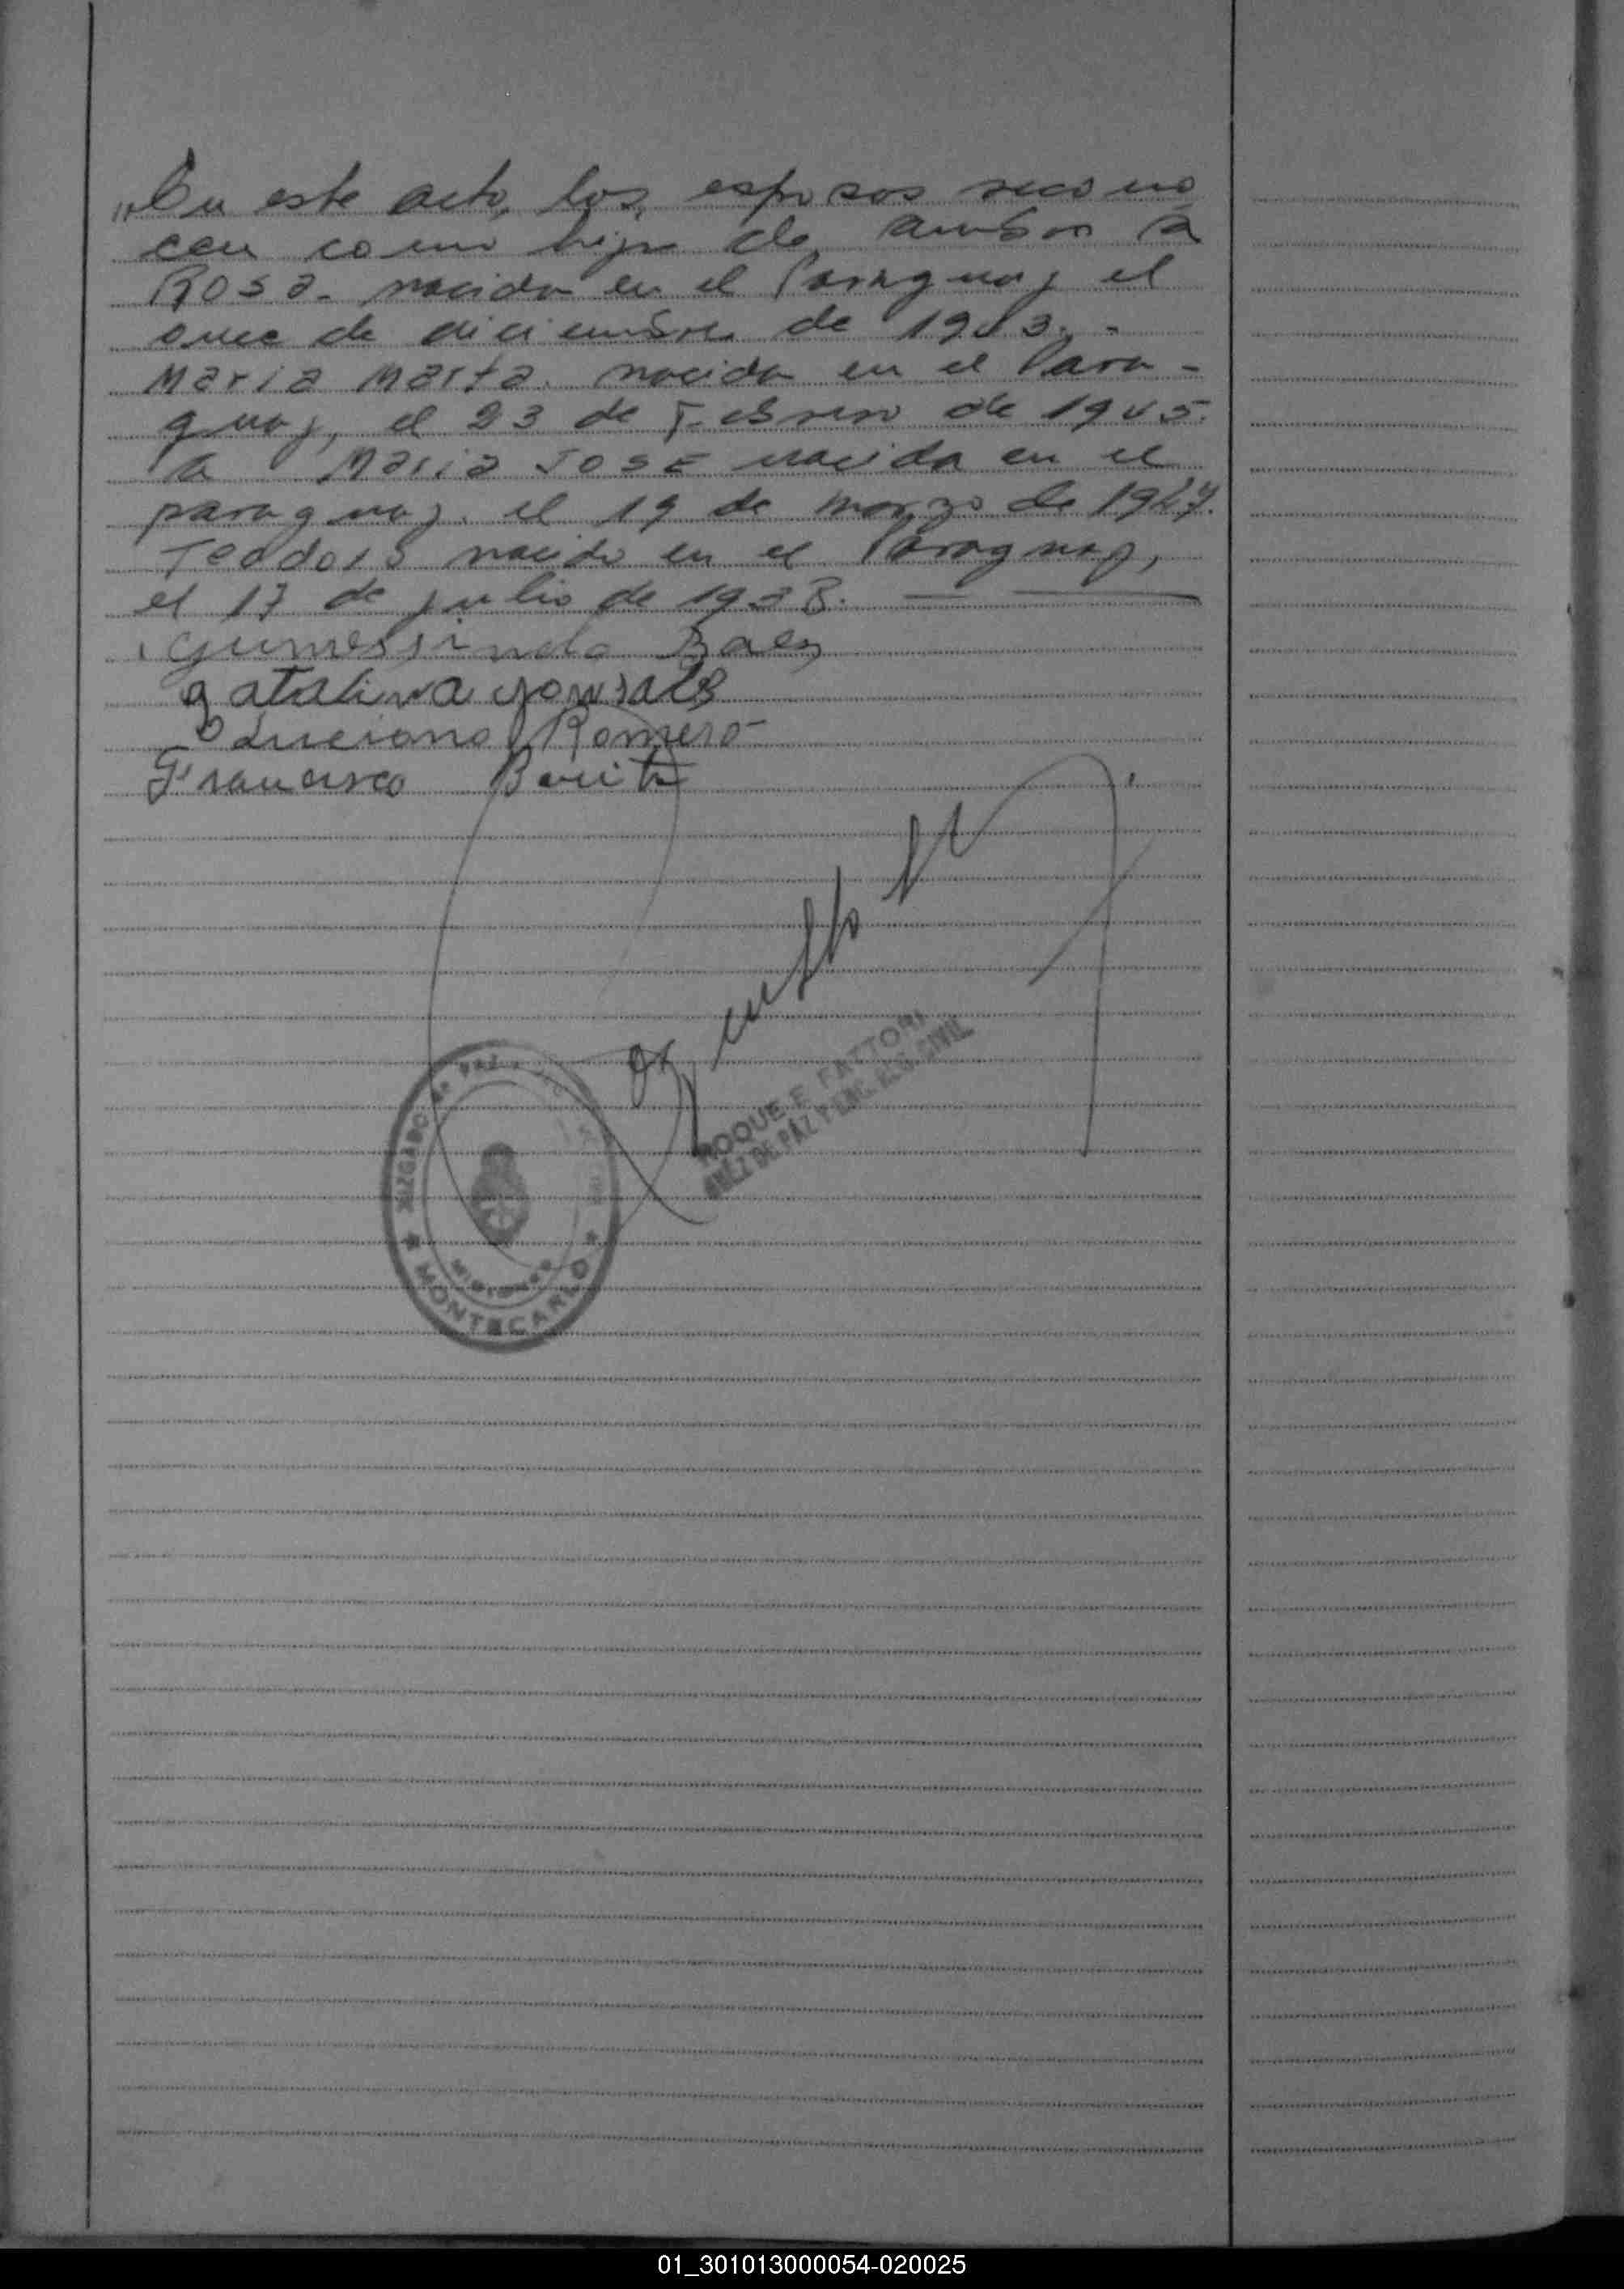 "En este acto, los esposos recono
cen como hijo de ambos a
Rosa. nacida en el Paraguay el
once de diciembre de 1943. -
Maria Marta. nacida en el Para-
guay, el 23 de Febrero de 1945.
a Maria JOSE nacida en el
paraguay. el 19 de marzo de 1947.
Teodoro nacido en el Paraguay,
el 17 de julio de 1938.
Gumessindo Baez
Catalina gonsales
Luciano Romero
Francisco
ROQUE F. FATTORI
JUEZ DE PAZ Y ENC. REG. CIVIL
JUZGADO DE PAZ
MISIONES
MONTECARLO
01_301013000054-020025